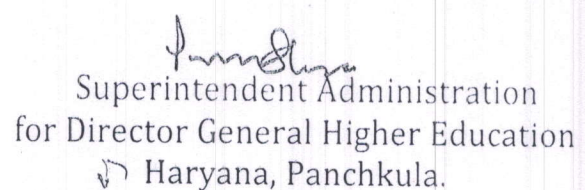 Superintendent Administration
for Director General Higher Education
Haryana, Panchkula.